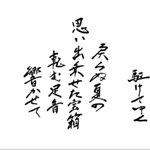 駆けてゆく
戻らぬ夏の
思い出乗せた宝箱
軋む足音
響かせて